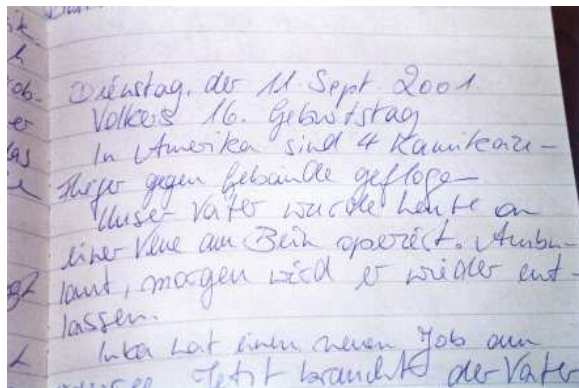 Dienstag, der 11. Sept. 2001.
Volkers 16. Geburtstag
In Amerika sind 4 Kamikaze-
flieger gegen Gebäude gefloge-
Unser Vater wurde heute an
einer Vene am Bein operiert. Ambu-
lant, morgen wird er wieder ent-
lassen.
Inka hat einen neuen Job am
Jetzt braucht der Vater